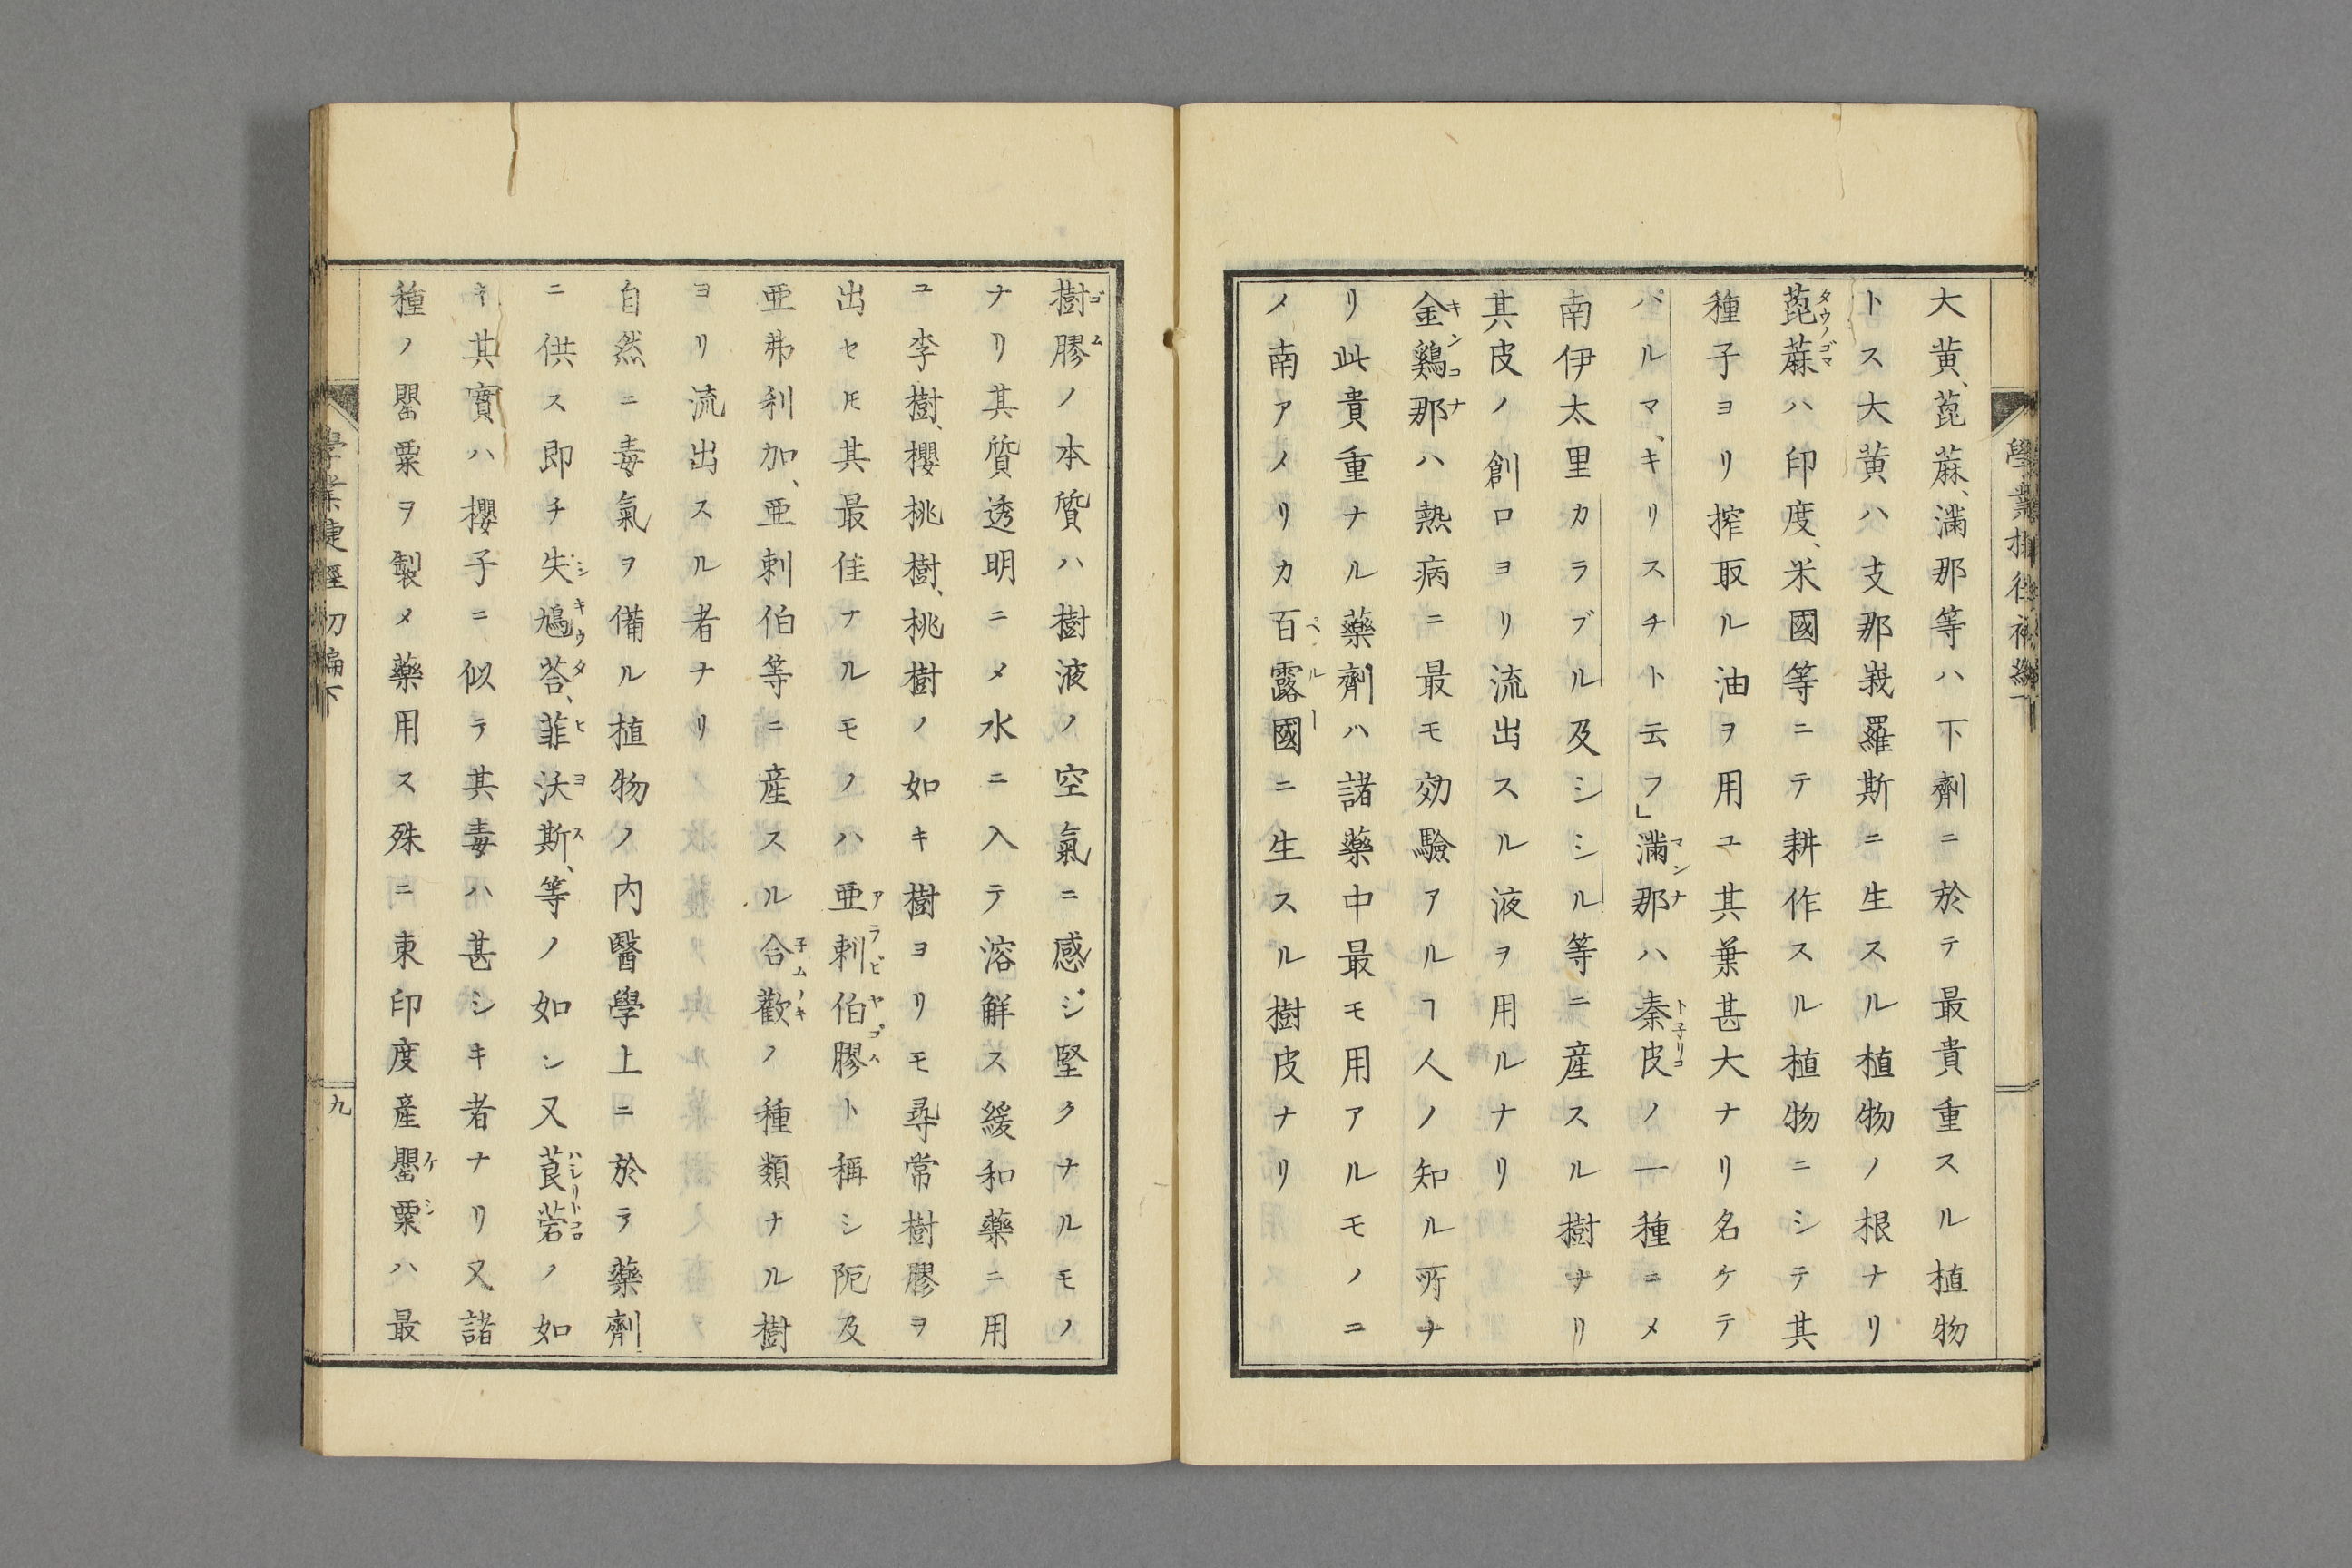 大黄、蓖麻、滿那等ハ下劑ニ於テ最貴重スル植物
トス大黄ハ支那峩羅斯ニ生スル植物ノ根ナリ
蓖麻ハ印度、米國等ニテ耕作スル植物ニシテ其
種子ヨリ搾取ル油ヲ用ユ其葉甚大ナリ名ケテ
パルマ、キリスチト云フ」滿那ハ秦皮ノ一種ニメ
南伊太里カラブル及シシル等ニ産スル樹ナリ
其皮ノ創口ヨリ流出スル液ヲ用ルナリ
金鷄那ハ熱病ニ最モ効驗アルヿ人ノ知ル所ナ
リ此貴重ナル藥劑ハ諸藥中最モ用アルモノニ
メ南アメリカ百露國ニ生スル樹皮ナリ
樹膠ノ本質ハ樹液ノ空氣ニ感ジ堅クナルモノ
ナリ其質透明ニメ水ニ入テ溶解ス緩和藥ニ用
ユ李樹、櫻桃樹、桃樹ノ如キ樹ヨリモ尋常樹膠ヲ
出セ𪜈其最佳ナルモノハ亜剌伯膠ト稱シ阨及
亜弗利加、亜剌伯等ニ産スル合歡ノ種類ナル樹
ヨリ流出スル者ナリ
自然ニ毒氣ヲ備ル植物ノ内醫學上ニ於テ藥劑
ニ供ス即チ失鳩荅、菲沃斯、等ノ如シ又莨菪ノ如
キ其實ハ櫻子ニ似テ其毒ハ甚シキ者ナリ又諸
種ノ罌粟ヲ製メ藥用ス殊ニ東印度産罌粟ハ最
學業捷徑初編下
九